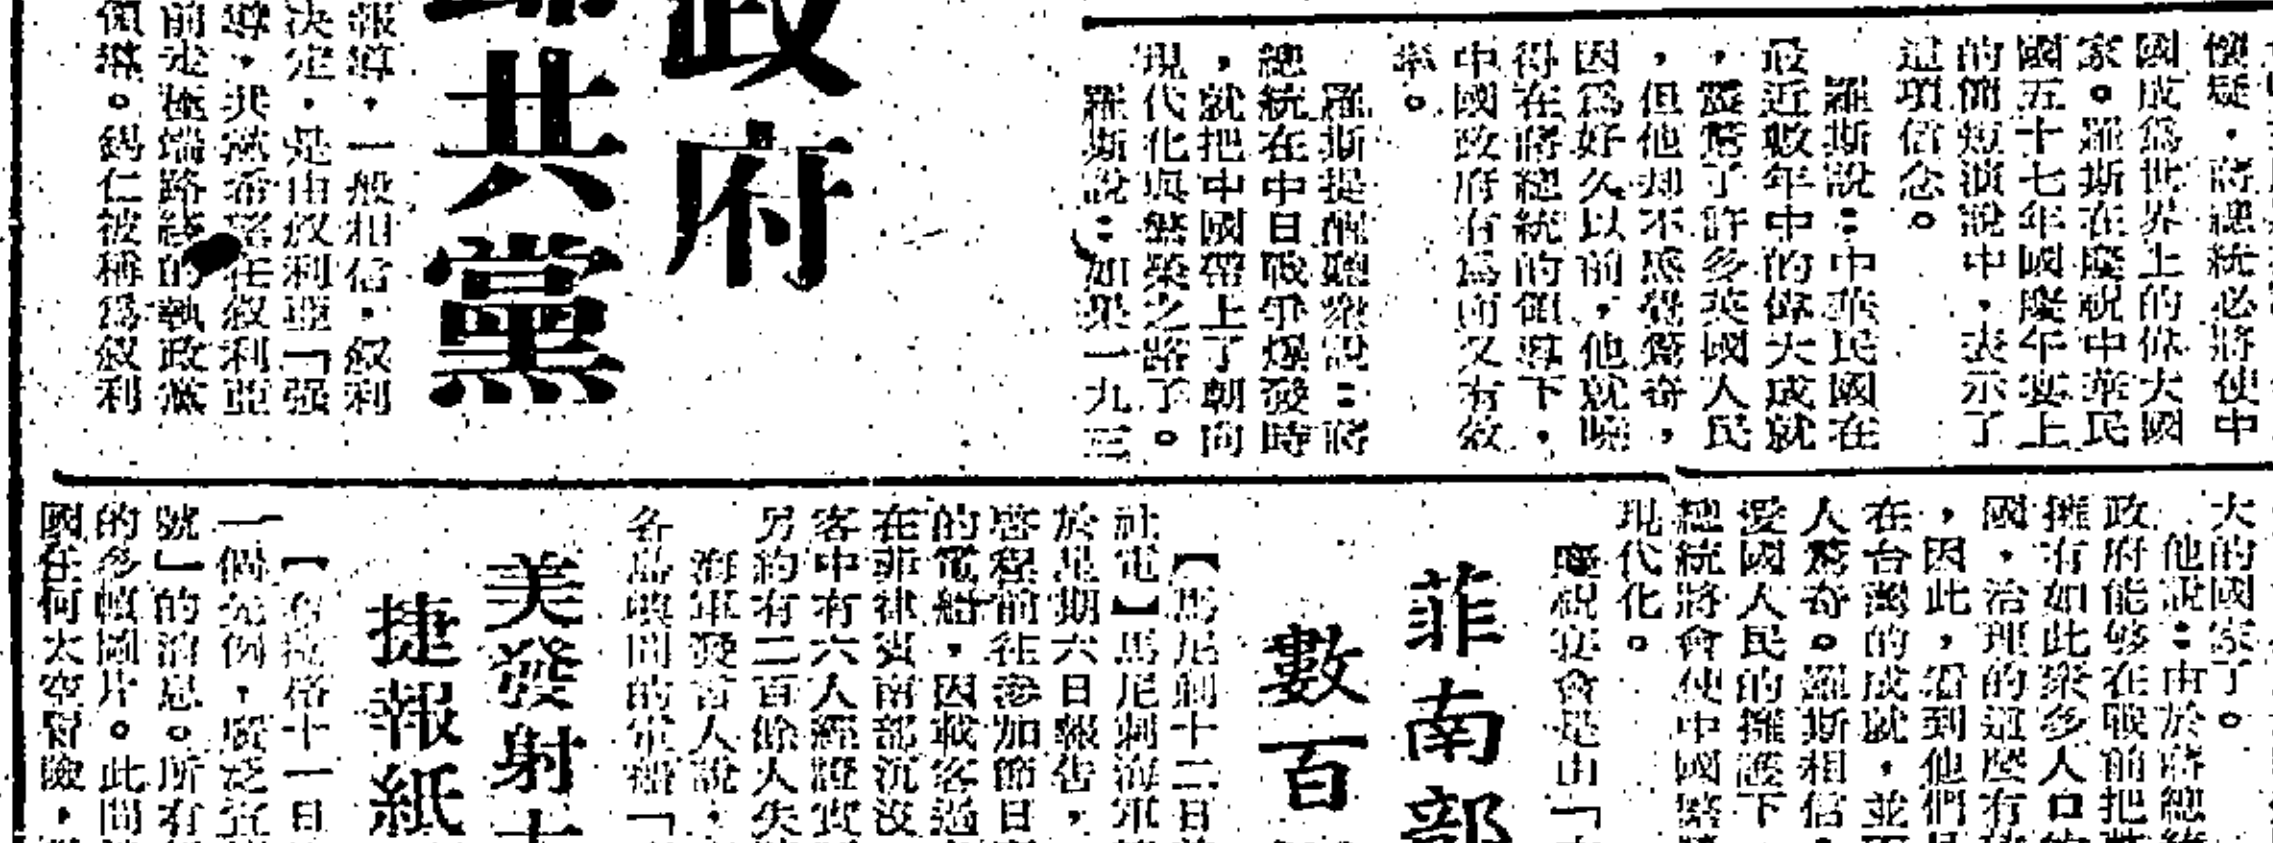 懷疑，蔣總統必將使中
國成爲世界上的偉大國
家。羅斯在慶祝中華民
國五十七年國慶午宴上
的簡短演說中，表示了
這項信念。
羅斯說：中華民國在
最近數年中的偉大成就
，震驚了許多英國人民
，但他却不感覺驚奇，
因爲好久以前，他就曉
得在蔣總統的領導下，
中國政府有爲而又有效
率。
羅斯提醒聽衆說：蔣
總統在中日戰爭爆發時
，就把中國帶上了朝向
現代化與繁榮之路了。
羅斯說：如果一九三
政府
共黨
報導，一般相信，叙利
決定，是由叙利亞「强
導，共黨希望在叙利亞
前走極端路綫的執政黨
領導。錫仁被稱爲叙利
大的國家了。
他說：由於蔣總統
政府能够在戰前把
擁有如此衆多人口的
國，治理的這麼有
，因此，看到他們
在台灣的成就，並不
人驚奇。羅斯相信，
愛國人民的擁護下，
總統將會使中國
現代化。
慶祝宴會是由「
菲南部
數百
【馬尼剌十二日
社電】馬尼剌海軍
於星期六日報告，
啓程前往參加節日
的電船，因載客過
在菲律賓南部沉沒
客中有六人經證實
另約有二百餘人失
海軍發言人說，
各島嶼間的軍船「
美發射
捷報紙
【布拉格十一日
一個先例，廣泛宣
號」的消息。所有
的多幀圖片。此間
國任何太空冒險，